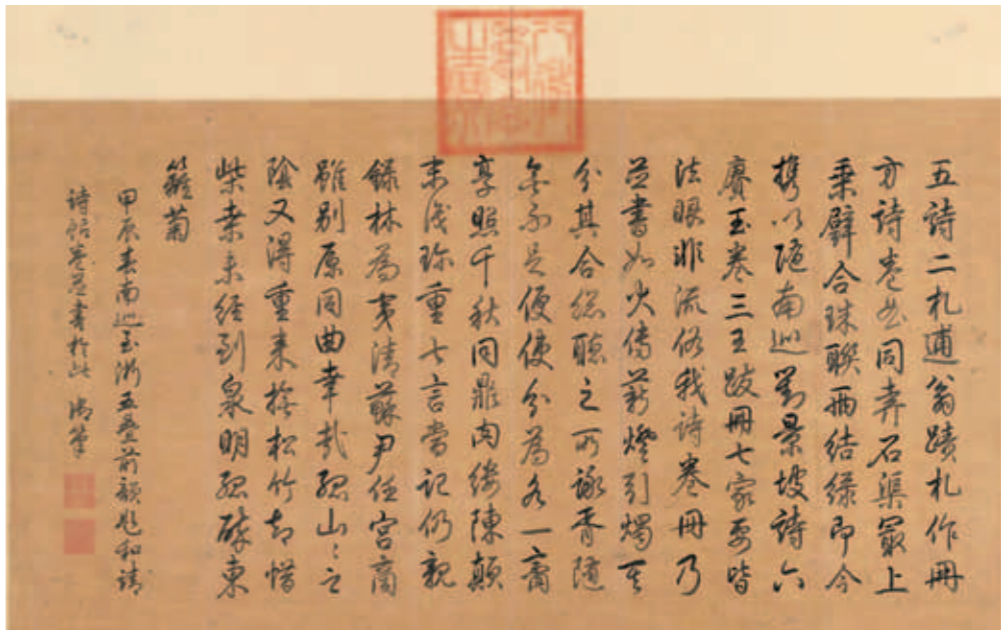 五詩二札逋翁蹟札作冊
方詩卷同弆石渠最上
乘璧合珠聯兩結綠即今
攜以隨南巡對景坡詩六
賡至卷三王跋冊七家要皆
法眼非流俗我詩卷冊乃
並書如火傳薪燈引燭其
分其合總聽之可詠胥隨
無不足便使分為各一齋
享照千秋同鼎肉縷陳顛
末識珍重七言當記仍親
錄林為夷清蘇尹任宮商
雖別原同曲幸哉孤山〻之
陰又得重來撫松竹却惜
柴桑未經到泉明孤醉東
籬菊
甲辰春南巡至浙五疊前韻題和靖
詩帖卷並書於此 御筆